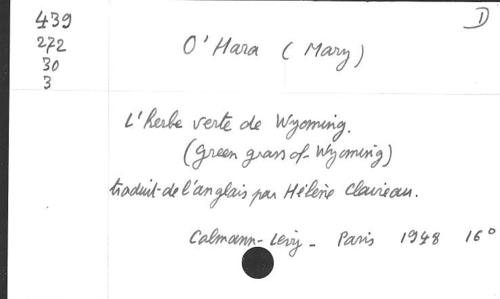 D
439
272
30
3
O'Hara (Mary)
L'herbe verte de Wyoming.
(Green grass of Wyoming)
traduit de l'anglais par Hélène Claireau.
Calmann-Levy - Paris 1948 16°